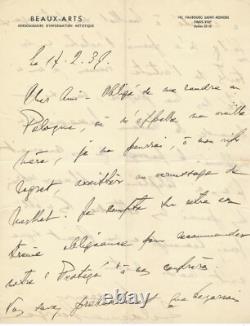 BEAUX-ARTS
HEBDOMADAIRE D'INFORMATION ARTISTIQUE
140, FAUBOURG SAINT-HONORÉ
PARIS-VIIIᵉ
Le 17.2.39.
Cher Ami - Obligé de me rendre en
Pologne, où m'appelle ma vieille
mère, je ne pourrai, à mon vif
regret assister au vernissage de
Je compte sur votre
obligeance pour recommander
notre "Protégé" à vos confrères
Vous savez